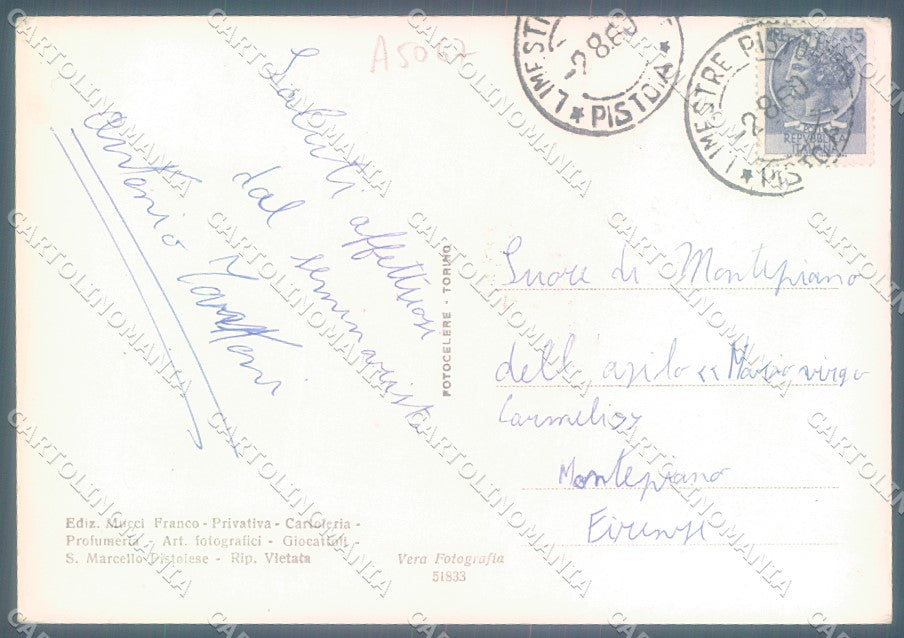 A5067
LIMESTRE PISTOIA
2.8.60
LIMESTRE PISTOIA
2.8.60
15
REPUBBLICA
ITALIANA
Saluti affettuosi
dal seminarista
Antonio
FOTOCELERE · TORINO
Suore di Montepiano
dell'asilo «Maria virgo
Carmeli»
Montepiano
Firenze
Ediz. Mucci Franco - Privativa - Cartoleria -
Profumeria - Art. fotografici - Giocattoli -
S. Marcello Pistoiese - Rip. Vietata
Vera Fotografia
51833
CARTOLINOMANIA